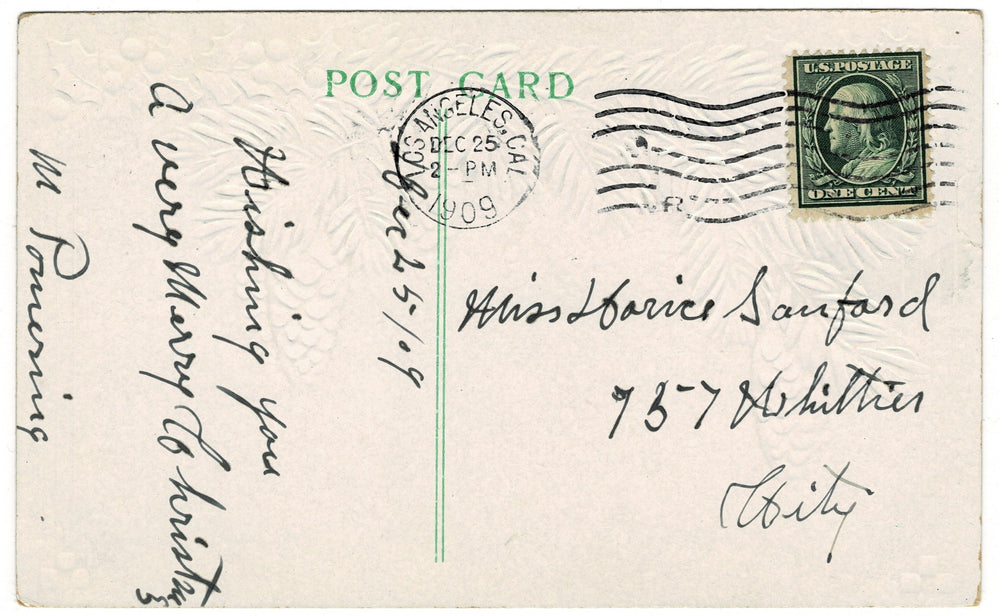 POST CARD
LOS ANGELES, CAL
DEC 25
2 - PM
1909
U.S. POSTAGE
ONE CENT
Dec 25/09
Wishing you
a very Merry Christmas
M
Miss Sanford
757 Whittier
City